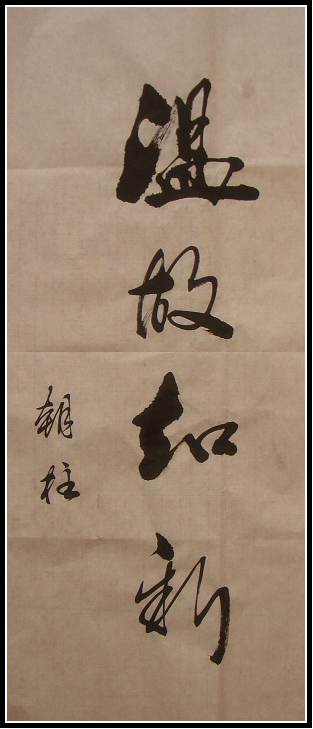 温故知新
朝柱